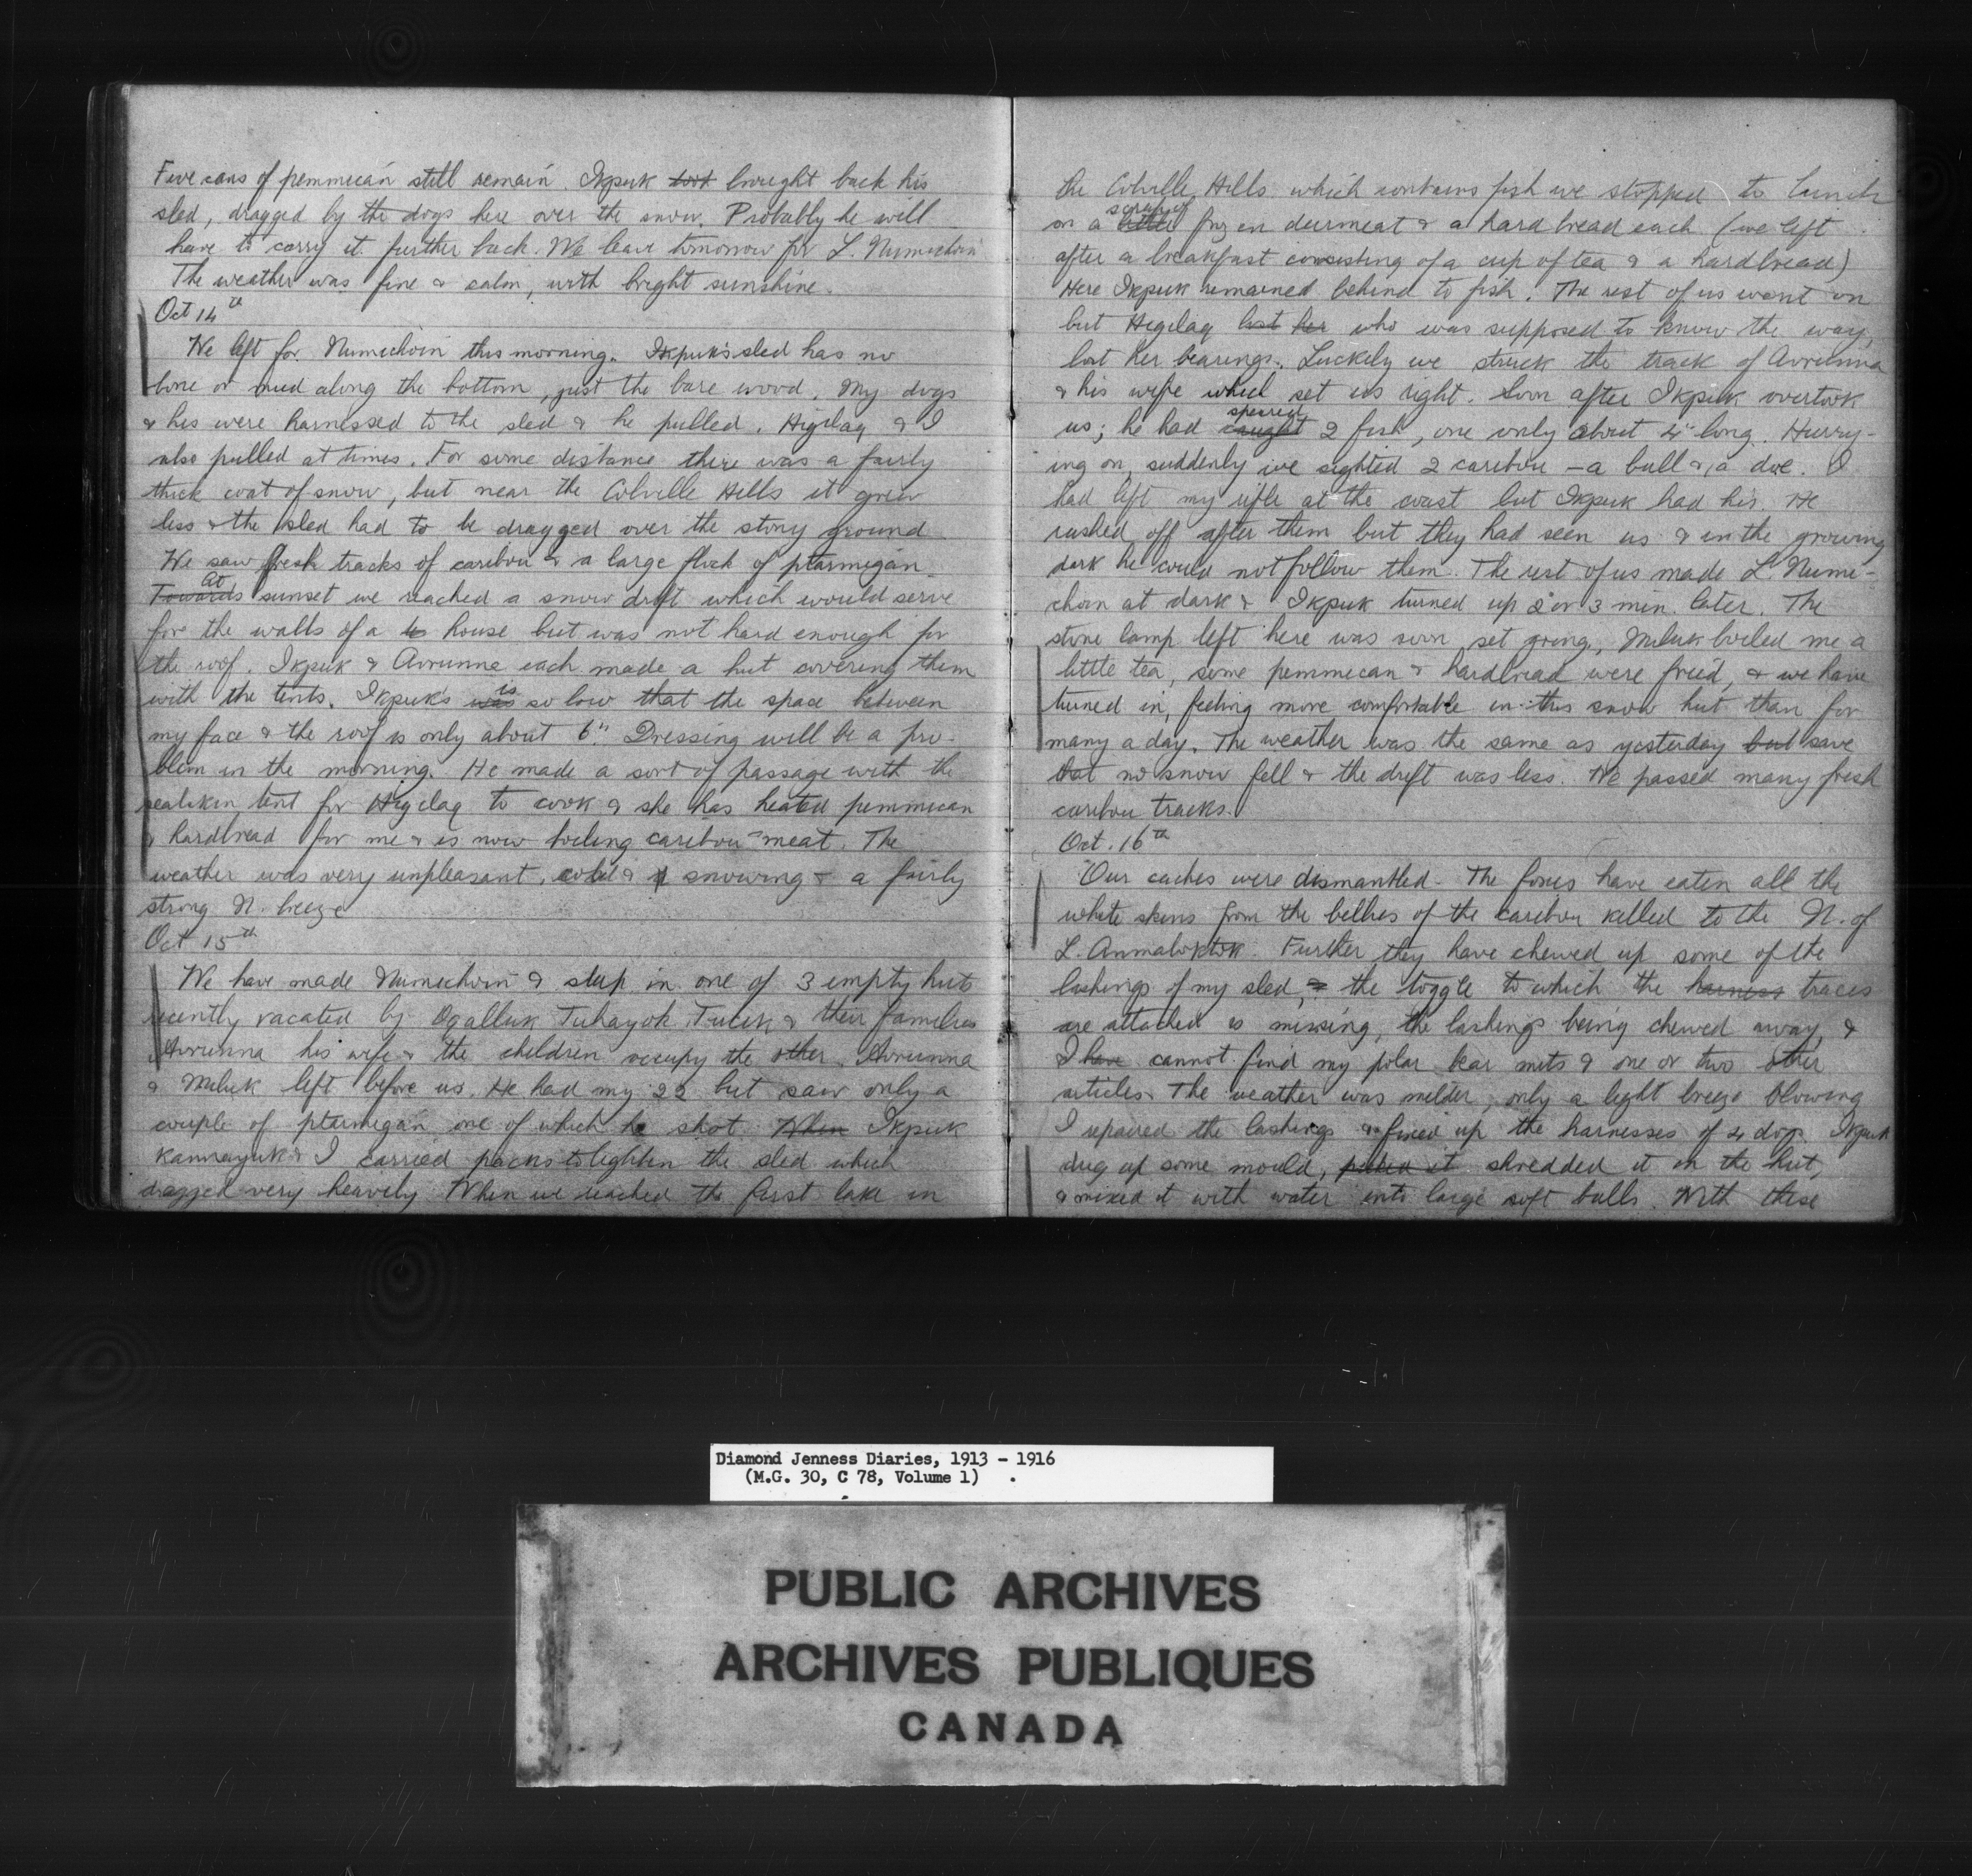 Five cans of pemmecan still remain. Ikpuk took brought back his
sled, dragged by the dogs here over the snow. Probably he will
have to carry it further back. We leave tomorrow for L. Numichoin
The weather was fine & calm, with bright sunshine.
Oct 14th
We left for Numichoin this morning. Ikpuk's sled has no
bone or mud along the bottom, just the bare wood. My dogs
& his were harnessed to the sled & he pulled. Higilaq & I
also pulled at times. For some distance there was a fairly
thick coat of snow, but near the Colville Hills it grew
less & the sled had to be dragged over the stony ground
We saw fresh tracks of caribou & a large flock of ptarmigan.
Towards At sunset we reached a snow drift which would serve
for the walls of a house but was not hard enough for
the roof. Ikpuk & Avrunna each made a hut covering them
with the tents. Ikpuk's was is so low that the space between
my face & the roof is only about 6". Dressing will be a pro-
blem in the morning. He made a sort of passage with the
sealskin tent for Higilaq to cook & she has heated pemmican
& hardbread for me & is now boiling caribou meat. The
weather was very unpleasant, cold & snowing & a fairly
strong N. breeze
Oct 15th
We have made Numichoin & sleep in one of 3 empty huts
recently vacated by Ogalluk Tuhayok, Tucik & their families
Avrunna his wife & the children occupy the other. Avrunna
& Miluk left before us. He had my 22 but saw only a
couple of ptarmigan one of which he shot. When Ikpuk
Kannayuk & I carried packs to lighten the sled which
dragged very heavily. When we reached the first lake in
the Colville Hills which contains fish we stopped to lunch
on a little scrap of frozen deermeat & a hard bread each (we left
after a breakfast consisting of a cup of tea & a hardbread)
Here Ikpuk remained behind to fish. The rest of us went on
but Higilaq lost her who was supposed to know the way,
lost her bearings. Luckely we struck the track of Avrunna
& his wife which set us right. Soon after Ikpuk overtook
us; he had caught speared 2 fish, one only about 4" long. Hurry-
ing on, suddenly we sighted 2 caribou – a bull & a doe. I
had left my rifle at the coast but Ikpuk had his. He
rushed off after them but they had seen us & in the growing
dark he could not follow them. The rest of us made L. Numi-
choin at dark & Ikpuk turned up 2 or 3 min. later. The
stone lamp left here was soon set going, Miluk boiled me a
little tea, some pemmecan & hardbread were fried, & we have
turned in, feeling more comfortable in this snow hut than for
many a day. The weather was the same as yesterday but save
that no snow fell & the drift was less. We passed many fresh
caribou tracks.
Oct. 16th
Our caches were dismantled. The foxes have eaten all the
white skins from the bellies of the caribou killed to the N. of
L. Anmaloktok. Further they have chewed up some of the
lashings of my sled, & the toggle to which the harness traces
are attached is missing, the lashings being chewed away, &
I have cannot find my polar bear mits & one or two other
articles. The weather was milder, only a light breeze blowing
I repaired the lashings & fixed up the harnesses of 4 dogs. Ikpuk
dug up some mould, shredded it in the hut,
& mixed it with water into large soft balls. With these
Diamond Jenness Diaries, 1913 - 1916
(M.G. 30, C 78, Volume 1)
PUBLIC ARCHIVES
ARCHIVES PUBLIQUES
CANADA